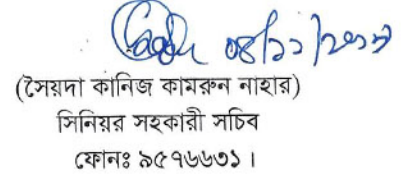 ০৪/১১/২০১৭
(সৈয়দা কানিজ কামরুন নাহার)
সিনিয়র সহকারী সচিব
ফোনঃ ৯৫৭৬৬৩১।